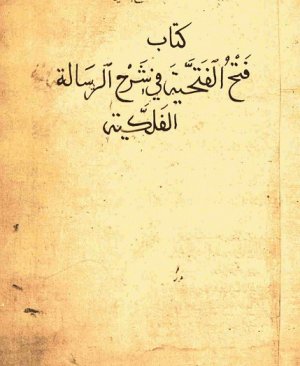 كتاب
فَتْحُ الفَتحيَّة في شَرْح الرسَالة
الفَلكيَّة